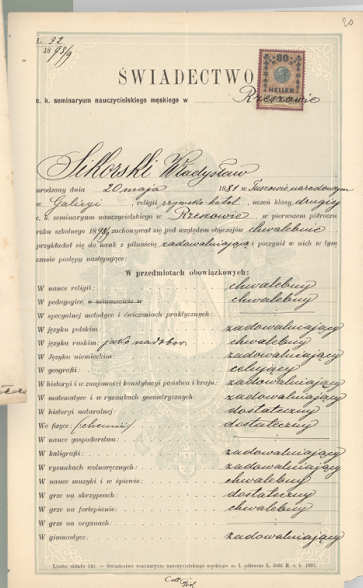 20
L. 92
1898/9
30
HELLER
ŚWIADECTWO
c. k. seminaryum nauczycielskiego męskiego w Rzeszowie
Sikorski Władysław
urodzony dnia 20 maja 1881 w Tuszowie narodowym
w Galicyi religii rzymsko katol. uczeń klasy drugiej
c. k. seminaryum nauczycielskiego w Rzeszowie, w pierwszem półroczu
roku szkolnego 1898/9 zachowywał się pod względem obyczajów chwalebnie
przykładał się do nauk z pilnością zadowalniającą i poczynił w nich w tym
czasie postępy następujące:
W przedmiotach obowiązkowych:
W nauce religii: chwalebny
W pedagogice, chwalebny
W specyalnej metodyce i ćwiczeniach praktycznych:
W języku polskim zadowalniający
W języku ruskim: jako nadobow. chwalebny
W języku niemieckim: zadowalniający
W geografii: celujący
W historyi i w znajomości konstytucyi państwa i kraju: zadowalniający
W matematyce i w rysunkach geometrycznych: zadowalniający
W historyi naturalnej: dostateczny
We fizyce: (chemii) dostateczny
W nauce gospodarstwa:
W kaligrafii: zadowalniający
W rysunkach wolnoręcznych: zadowalniający
W nauce muzyki i w śpiewie: chwalebny
W grze na skrzypcach: dostateczny
W grze na fortepianie: chwalebny
W grze na organach:
W gimnastyce: zadowalniający